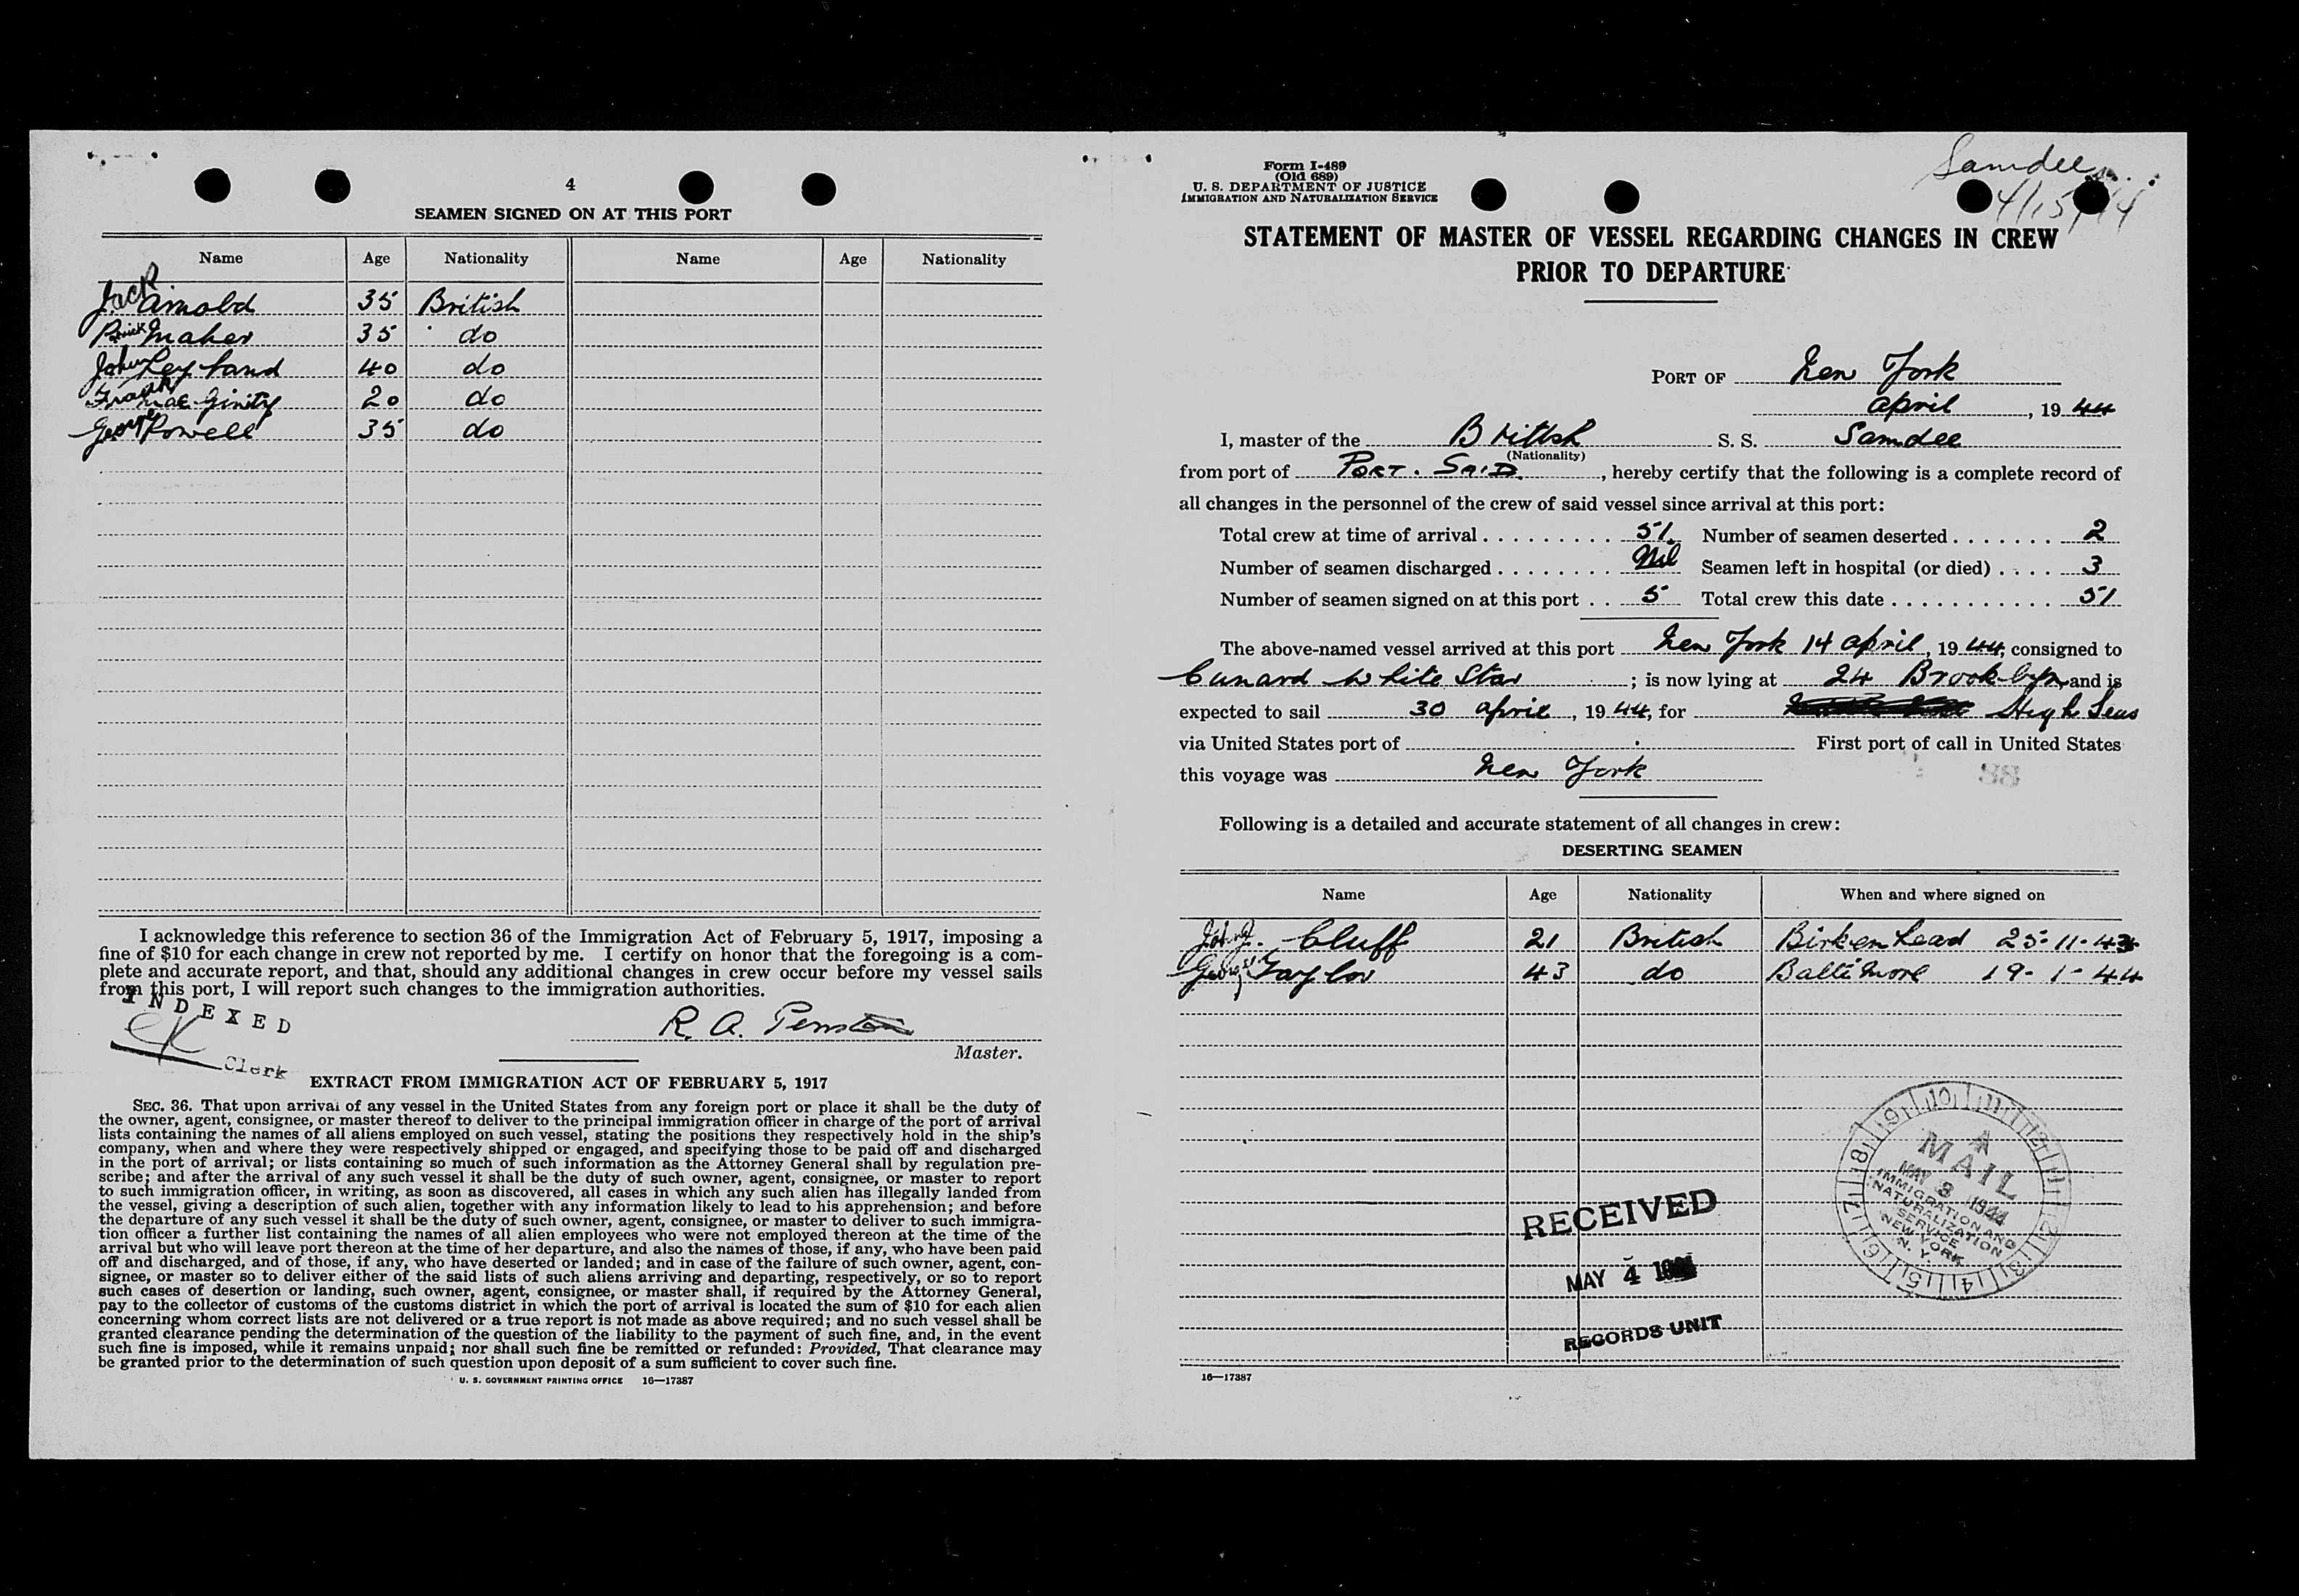 4
SEAMEN SIGNED ON AT THIS PORT
Name Age Nationality Name Age Nationality
Jack Arnold 35 British
Maher 35 do
John Leyland 40 do
Frank MacGinity 20 do
George Powell 35 do
I acknowledge this reference to section 36 of the Immigration Act of February 5, 1917, imposing a
fine of $10 for each change in crew not reported by me. I certify on honor that the foregoing is a com-
plete and accurate report, and that, should any additional changes in crew occur before my vessel sails
from this port, I will report such changes to the immigration authorities.
INDEXED
Clerk
R. A. Penston
Master.
EXTRACT FROM IMMIGRATION ACT OF FEBRUARY 5, 1917
SEC. 36. That upon arrival of any vessel in the United States from any foreign port or place it shall be the duty of
the owner, agent, consignee, or master thereof to deliver to the principal immigration officer in charge of the port of arrival
lists containing the names of all aliens employed on such vessel, stating the positions they respectively hold in the ship's
company, when and where they were respectively shipped or engaged, and specifying those to be paid off and discharged
in the port of arrival; or lists containing so much of such information as the Attorney General shall by regulation pre-
scribe; and after the arrival of any such vessel it shall be the duty of such owner, agent, consignee, or master to report
to such immigration officer, in writing, as soon as discovered, all cases in which any such alien has illegally landed from
the vessel, giving a description of such alien, together with any information likely to lead to his apprehension; and before
the departure of any such vessel it shall be the duty of such owner, agent, consignee, or master to deliver to such immigra-
tion officer a further list containing the names of all alien employees who were not employed thereon at the time of the
arrival but who will leave port thereon at the time of her departure, and also the names of those, if any, who have been paid
off and discharged, and of those, if any, who have deserted or landed; and in case of the failure of such owner, agent, con-
signee, or master so to deliver either of the said lists of such aliens arriving and departing, respectively, or so to report
such cases of desertion or landing, such owner, agent, consignee, or master shall, if required by the Attorney General,
pay to the collector of customs of the customs district in which the port of arrival is located the sum of $10 for each alien
concerning whom correct lists are not delivered or a true report is not made as above required; and no such vessel shall be
granted clearance pending the determination of the question of the liability to the payment of such fine, and, in the event
such fine is imposed, while it remains unpaid; nor shall such fine be remitted or refunded: Provided, That clearance may
be granted prior to the determination of such question upon deposit of a sum sufficient to cover such fine.
U. S. GOVERNMENT PRINTING OFFICE 16—17387
Form I-489
(Old 689)
U. S. DEPARTMENT OF JUSTICE
IMMIGRATION AND NATURALIZATION SERVICE
Samdee
4/15/44
STATEMENT OF MASTER OF VESSEL REGARDING CHANGES IN CREW
PRIOR TO DEPARTURE
PORT OF New York
April, 19 44
I, master of the British S. S. Samdee
(Nationality)
from port of PORT. SAID, hereby certify that the following is a complete record of
all changes in the personnel of the crew of said vessel since arrival at this port:
Total crew at time of arrival 51. Number of seamen deserted 2
Number of seamen discharged Nil Seamen left in hospital (or died) 3
Number of seamen signed on at this port 5 Total crew this date 51
The above-named vessel arrived at this port New York 14 April, 19 44, consigned to
Cunard White Star; is now lying at 24 Brooklyn, and is
expected to sail 30 April, 19 44, for High Seas
via United States port of First port of call in United States
this voyage was New York
88
Following is a detailed and accurate statement of all changes in crew:
DESERTING SEAMEN
Name Age Nationality When and where signed on
John J. Cluff 21 British Birkenhead 25-11-43
George Taylor 43 do Baltimore 19-1-44
10 11 12 1 2 3 4 5 6 7 8 9
A
MAIL
MAY 3 1944
IMMIGRATION AND
NATURALIZATION
SERVICE
NEW YORK
N. Y.
RECEIVED
MAY 4
RECORDS UNIT
16—17387